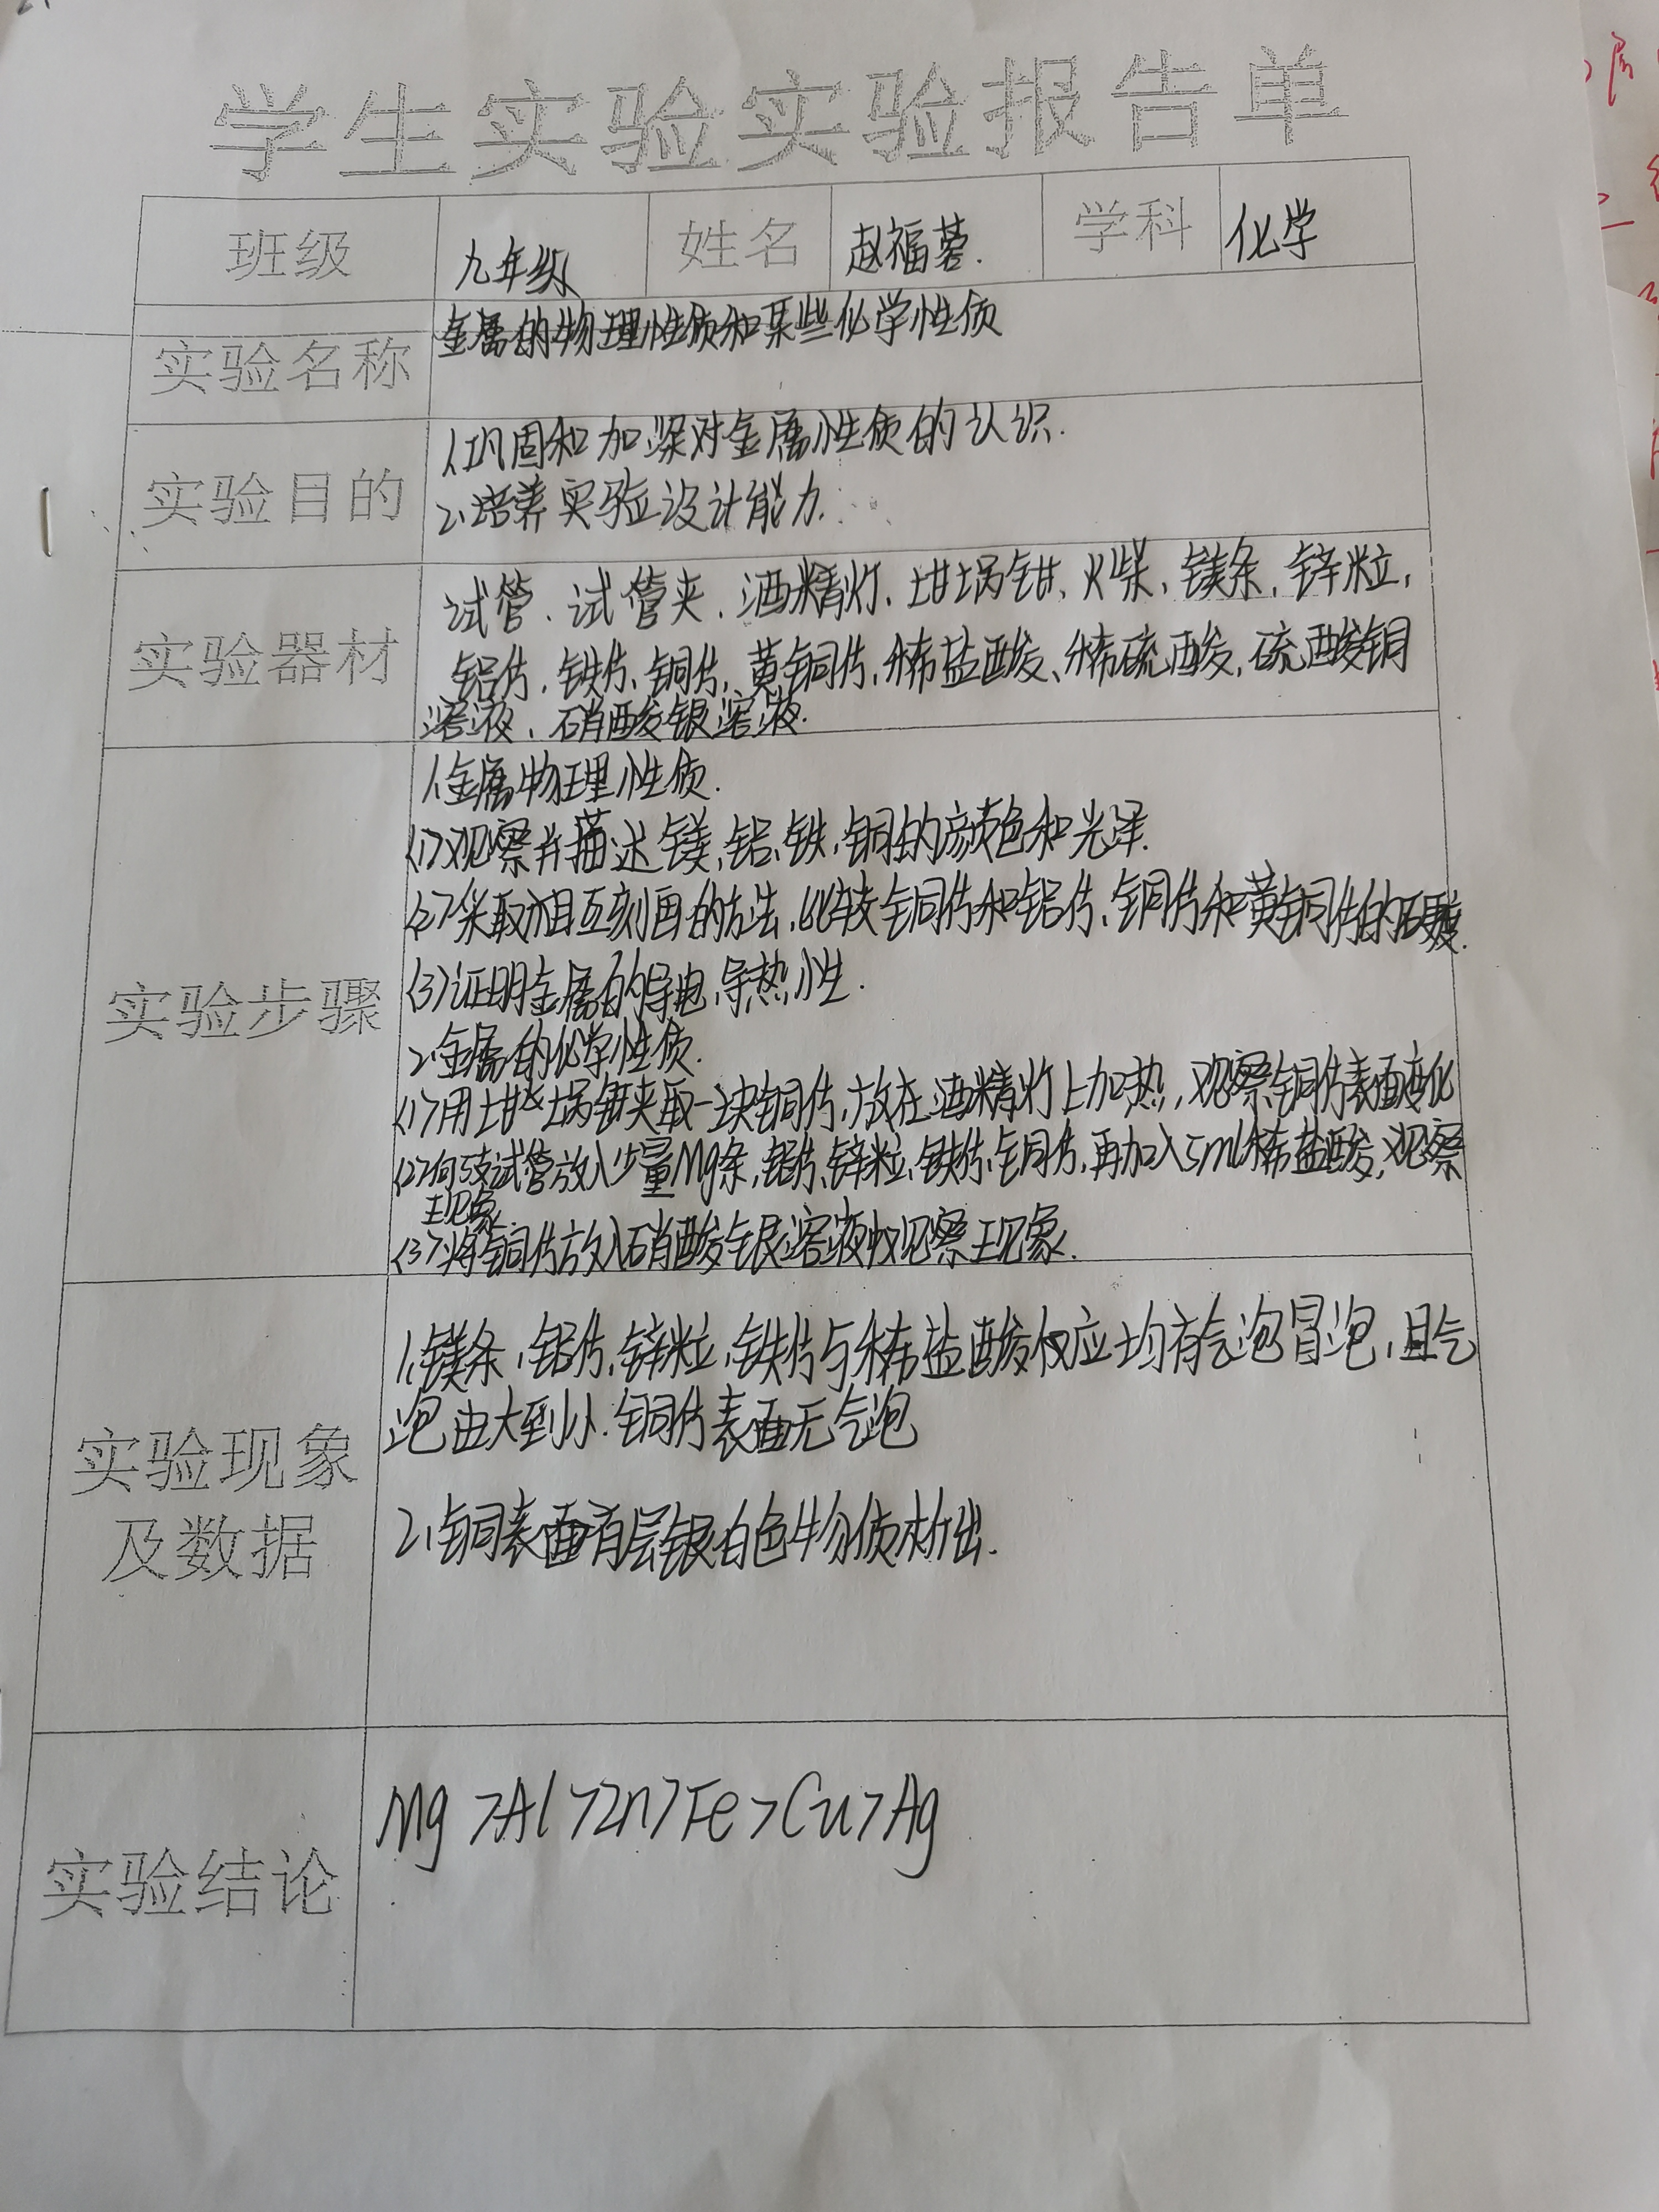 学生实验实验报告单
班级 九年级 姓名 赵福蓉. 学科 化学
实验名称 金属的物理性质和某些化学性质
实验目的
1、巩固和加深对金属性质的认识.
2、培养实验设计能力.
实验器材
试管、试管夹、酒精灯、坩埚钳、火柴、镁条、锌粒,
铝片、铁片、铜片、黄铜片,稀盐酸、稀硫酸,硫酸铜
溶液、硝酸银溶液.
实验步骤
1、金属物理性质.
(1)观察并描述镁,铝,铁,铜的颜色和光泽.
(2)采取相互刻画的方法,比较铜片和铝片、铜片和黄铜片的硬度.
(3)证明金属的导电,导热性.
2、金属的化学性质.
(1)用坩埚钳夹取一块铜片,放在酒精灯上加热,观察铜片表面变化
(2)向5支试管放入少量Mg条,铝片、锌粒、铁片、铜片,再加入5ml稀盐酸,观察
现象.
(3)将铜片放入硝酸银溶液中观察现象.
实验现象
及数据
1、镁条,铝片,锌粒,铁片与稀盐酸反应均有气泡冒泡,且气
泡由大到小.铜片表面无气泡
2、铜表面有层银白色物质析出.
实验结论
Mg>Al>Zn>Fe>Cu>Ag